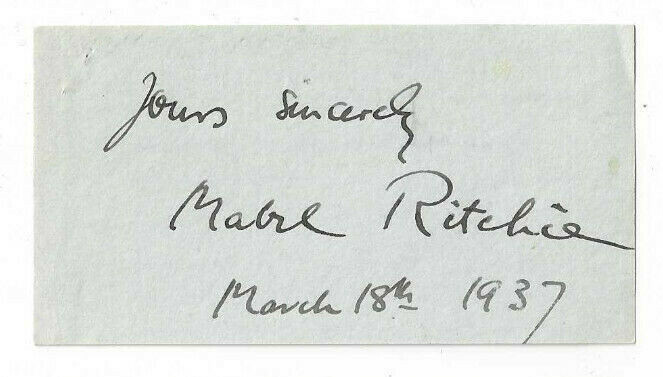 Yours sincerely
Mabel Ritchie
March 18th 1937